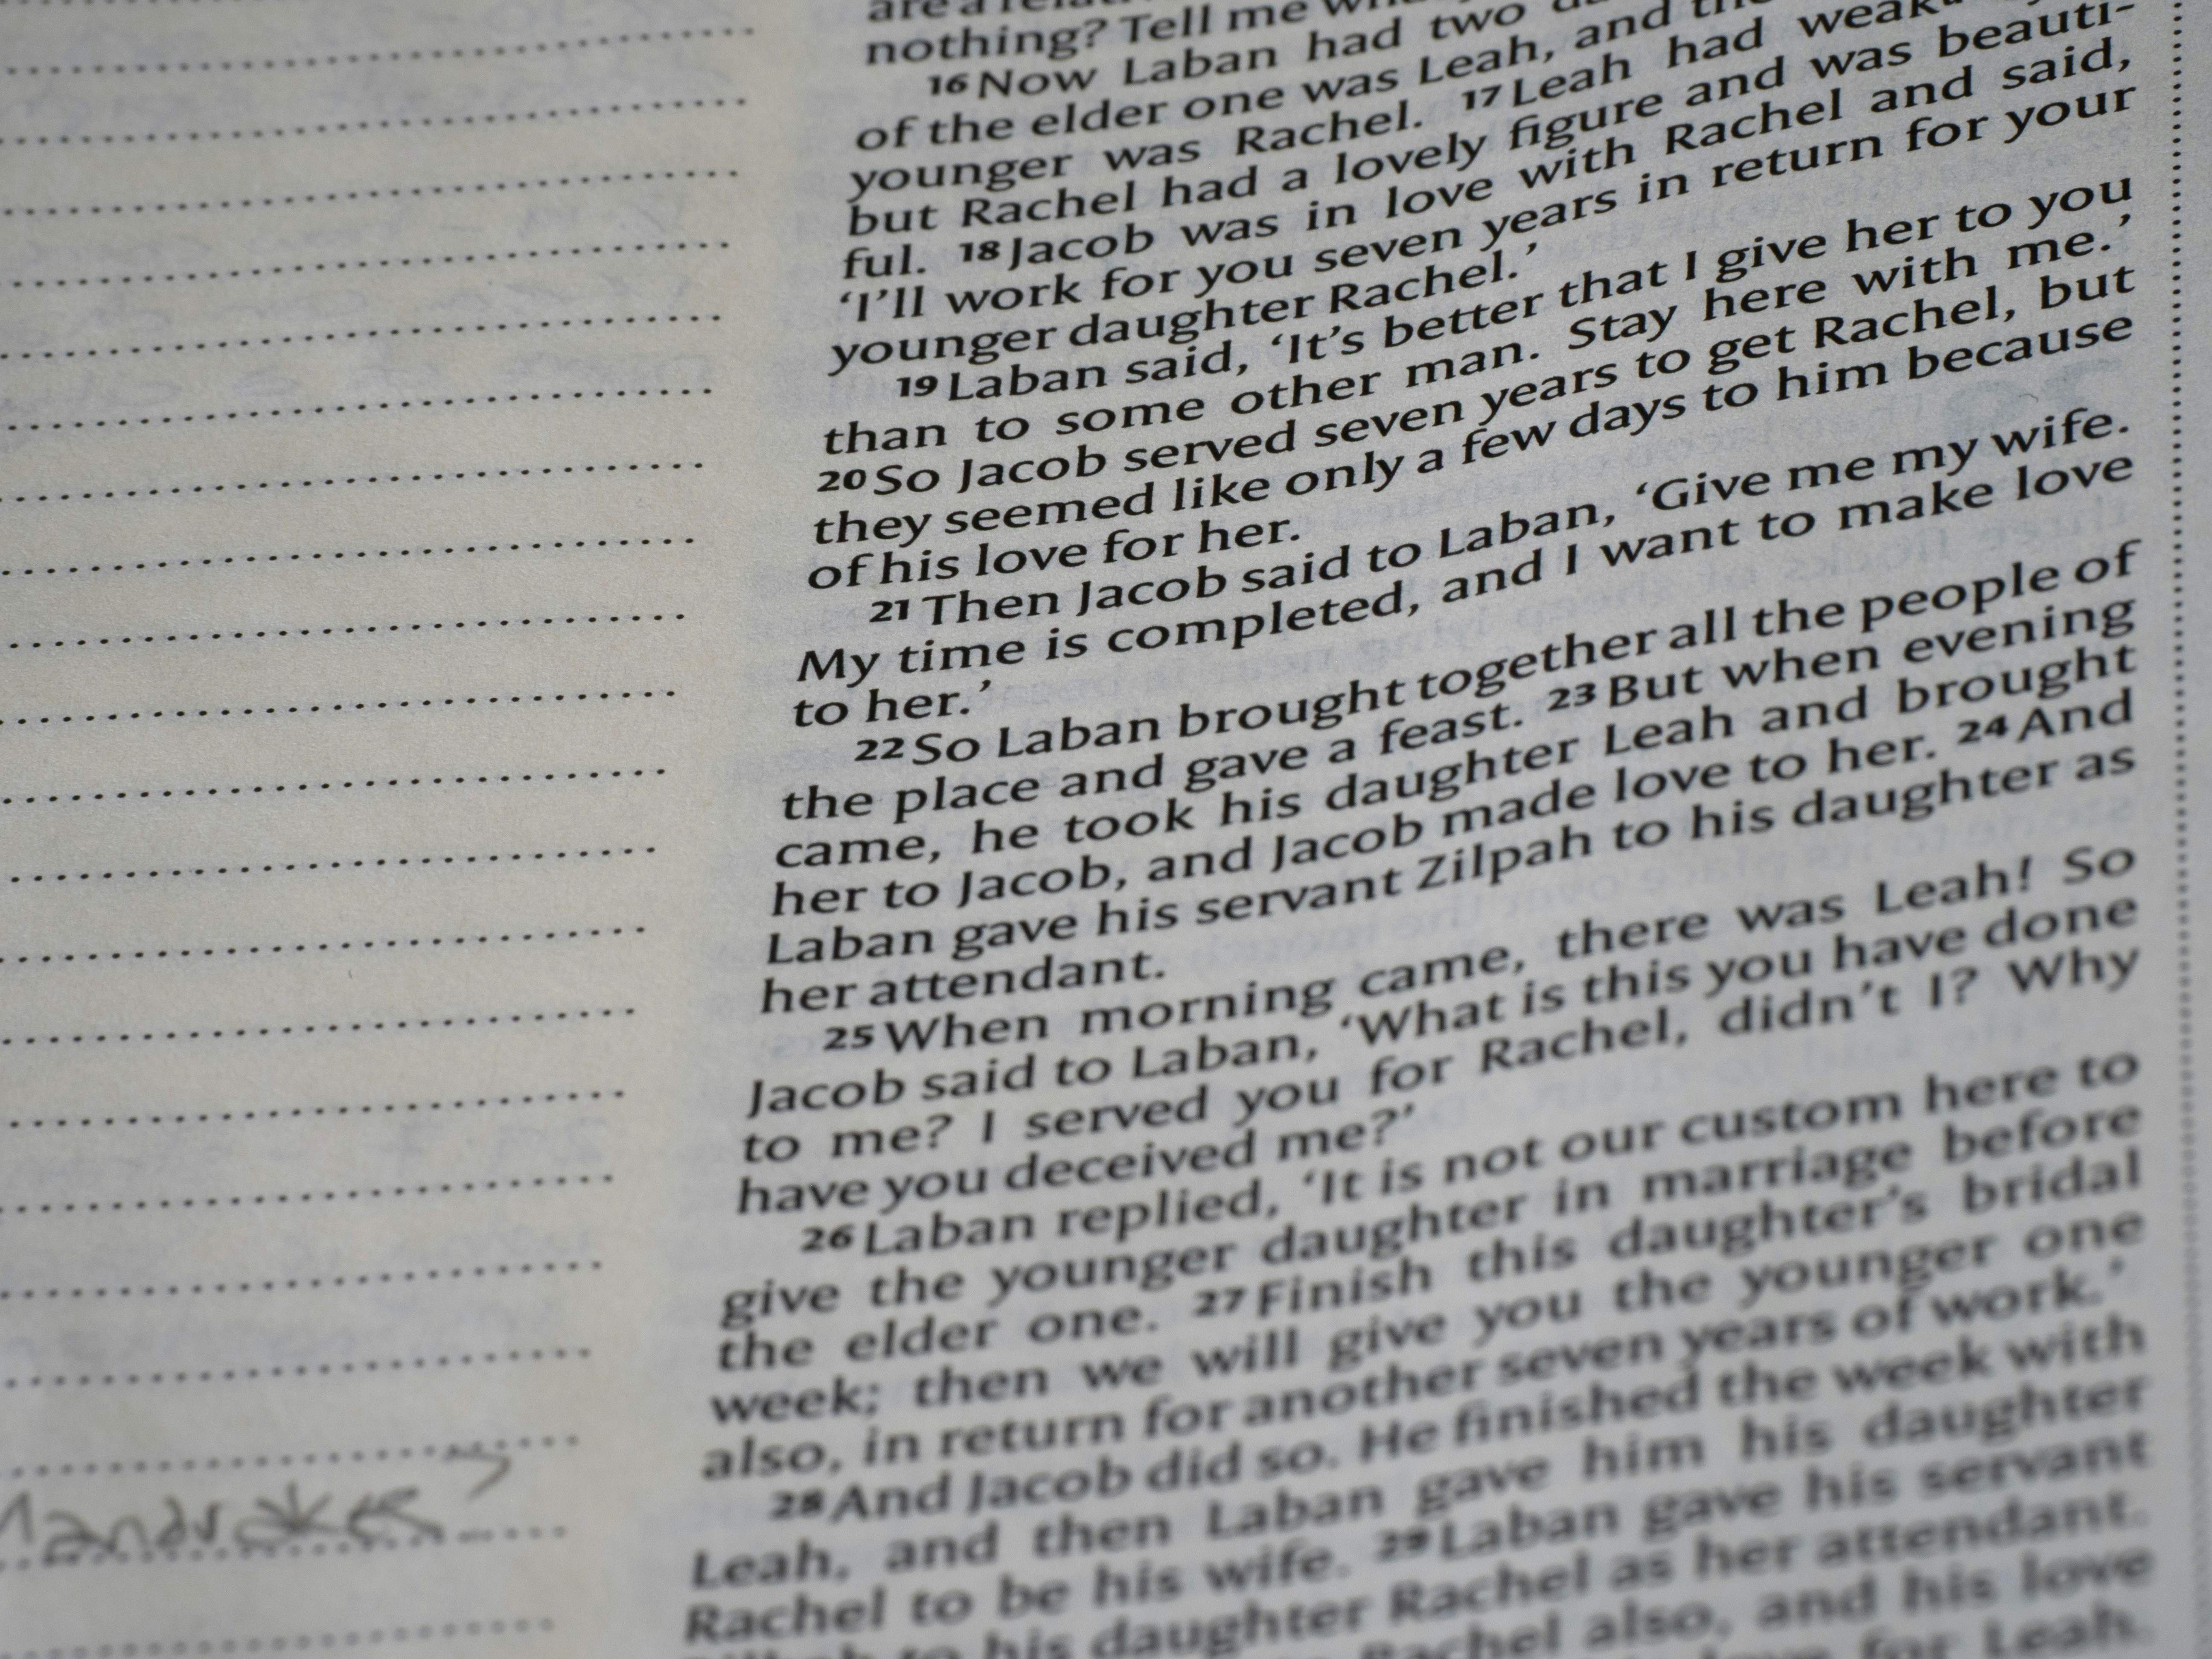 nothing? Tell me
16 Now Laban had two
of the elder one was Leah, and
younger was Rachel. 17 Leah had weak
but Rachel had a lovely figure and was beauti-
ful. 18 Jacob was in love with Rachel and said,
‘I’ll work for you seven years in return for your
younger daughter Rachel.’
19 Laban said, ‘It’s better that I give her to you
than to some other man. Stay here with me.’
20 So Jacob served seven years to get Rachel, but
they seemed like only a few days to him because
of his love for her.
21 Then Jacob said to Laban, ‘Give me my wife.
My time is completed, and I want to make love
to her.’
22 So Laban brought together all the people of
the place and gave a feast. 23 But when evening
came, he took his daughter Leah and brought
her to Jacob, and Jacob made love to her. 24 And
Laban gave his servant Zilpah to his daughter as
her attendant.
25 When morning came, there was Leah! So
Jacob said to Laban, ‘What is this you have done
to me? I served you for Rachel, didn’t I? Why
have you deceived me?’
26 Laban replied, ‘It is not our custom here to
give the younger daughter in marriage before
the elder one. 27 Finish this daughter’s bridal
week; then we will give you the younger one
also, in return for another seven years of work.’
28 And Jacob did so. He finished the week with
Leah, and then Laban gave him his daughter
Rachel to be his wife. 29 Laban gave his servant
to his daughter Rachel as her attendant.
Rachel also, and his love
for Leah.
Mandrakes?